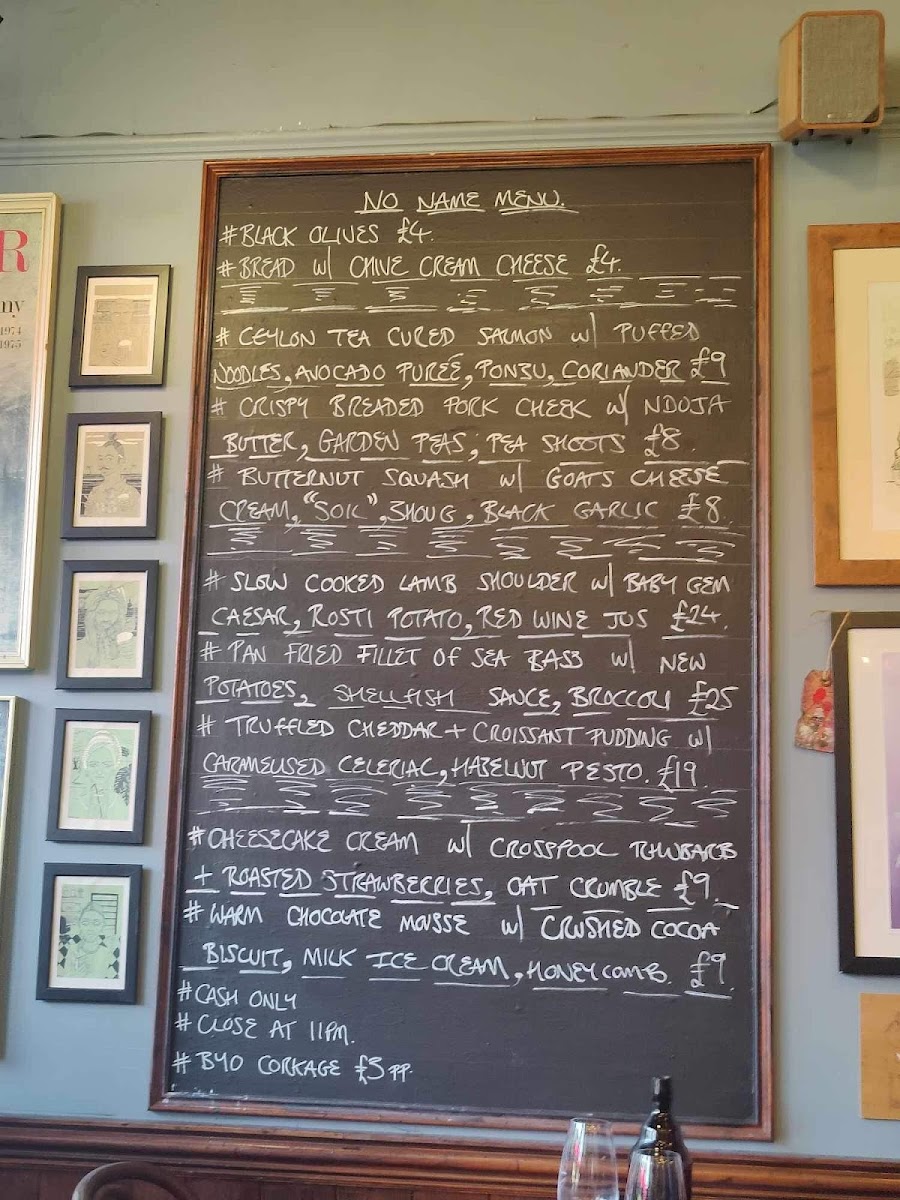 NO NAME MENU.
#BLACK OLIVES £4.
#BREAD W/ CHIVE CREAM CHEESE £4.
# CEYLON TEA CURED SALMON W/ PUFFED
NOODLES, AVOCADO PUREÉ, PONZU, CORIANDER £9
# CRISPY BREADED PORK CHEEK W/ NDOJA
BUTTER, GARDEN PEAS, PEA SHOOTS £8
# BUTTERNUT SQUASH W/ GOATS CHEESE
CREAM, "SOIL", ZHOUG, BLACK GARLIC £8.
# SLOW COOKED LAMB SHOULDER W/ BABY GEM
CAESAR, ROSTI POTATO, RED WINE JUS £24.
# PAN FRIED FILLET OF SEA BASS W/ NEW
POTATOES, SHELLFISH SAUCE, BROCCOLI £25
# TRUFFLED CHEDDAR + CROISSANT PUDDING W/
CARAMELISED CELERIAC, HAZELNUT PESTO. £19
#CHEESECAKE CREAM W/ CROSSPOOL RHUBARB
+ ROASTED STRAWBERRIES, OAT CRUMBLE £9.
#WARM CHOCOLATE MOUSSE W/ CRUSHED COCOA
BISCUIT, MILK ICE CREAM, HONEYCOMB. £9.
#CASH ONLY
# CLOSE AT 11PM.
# BYO CORKAGE £3 PP.
R
ny
1974
1975